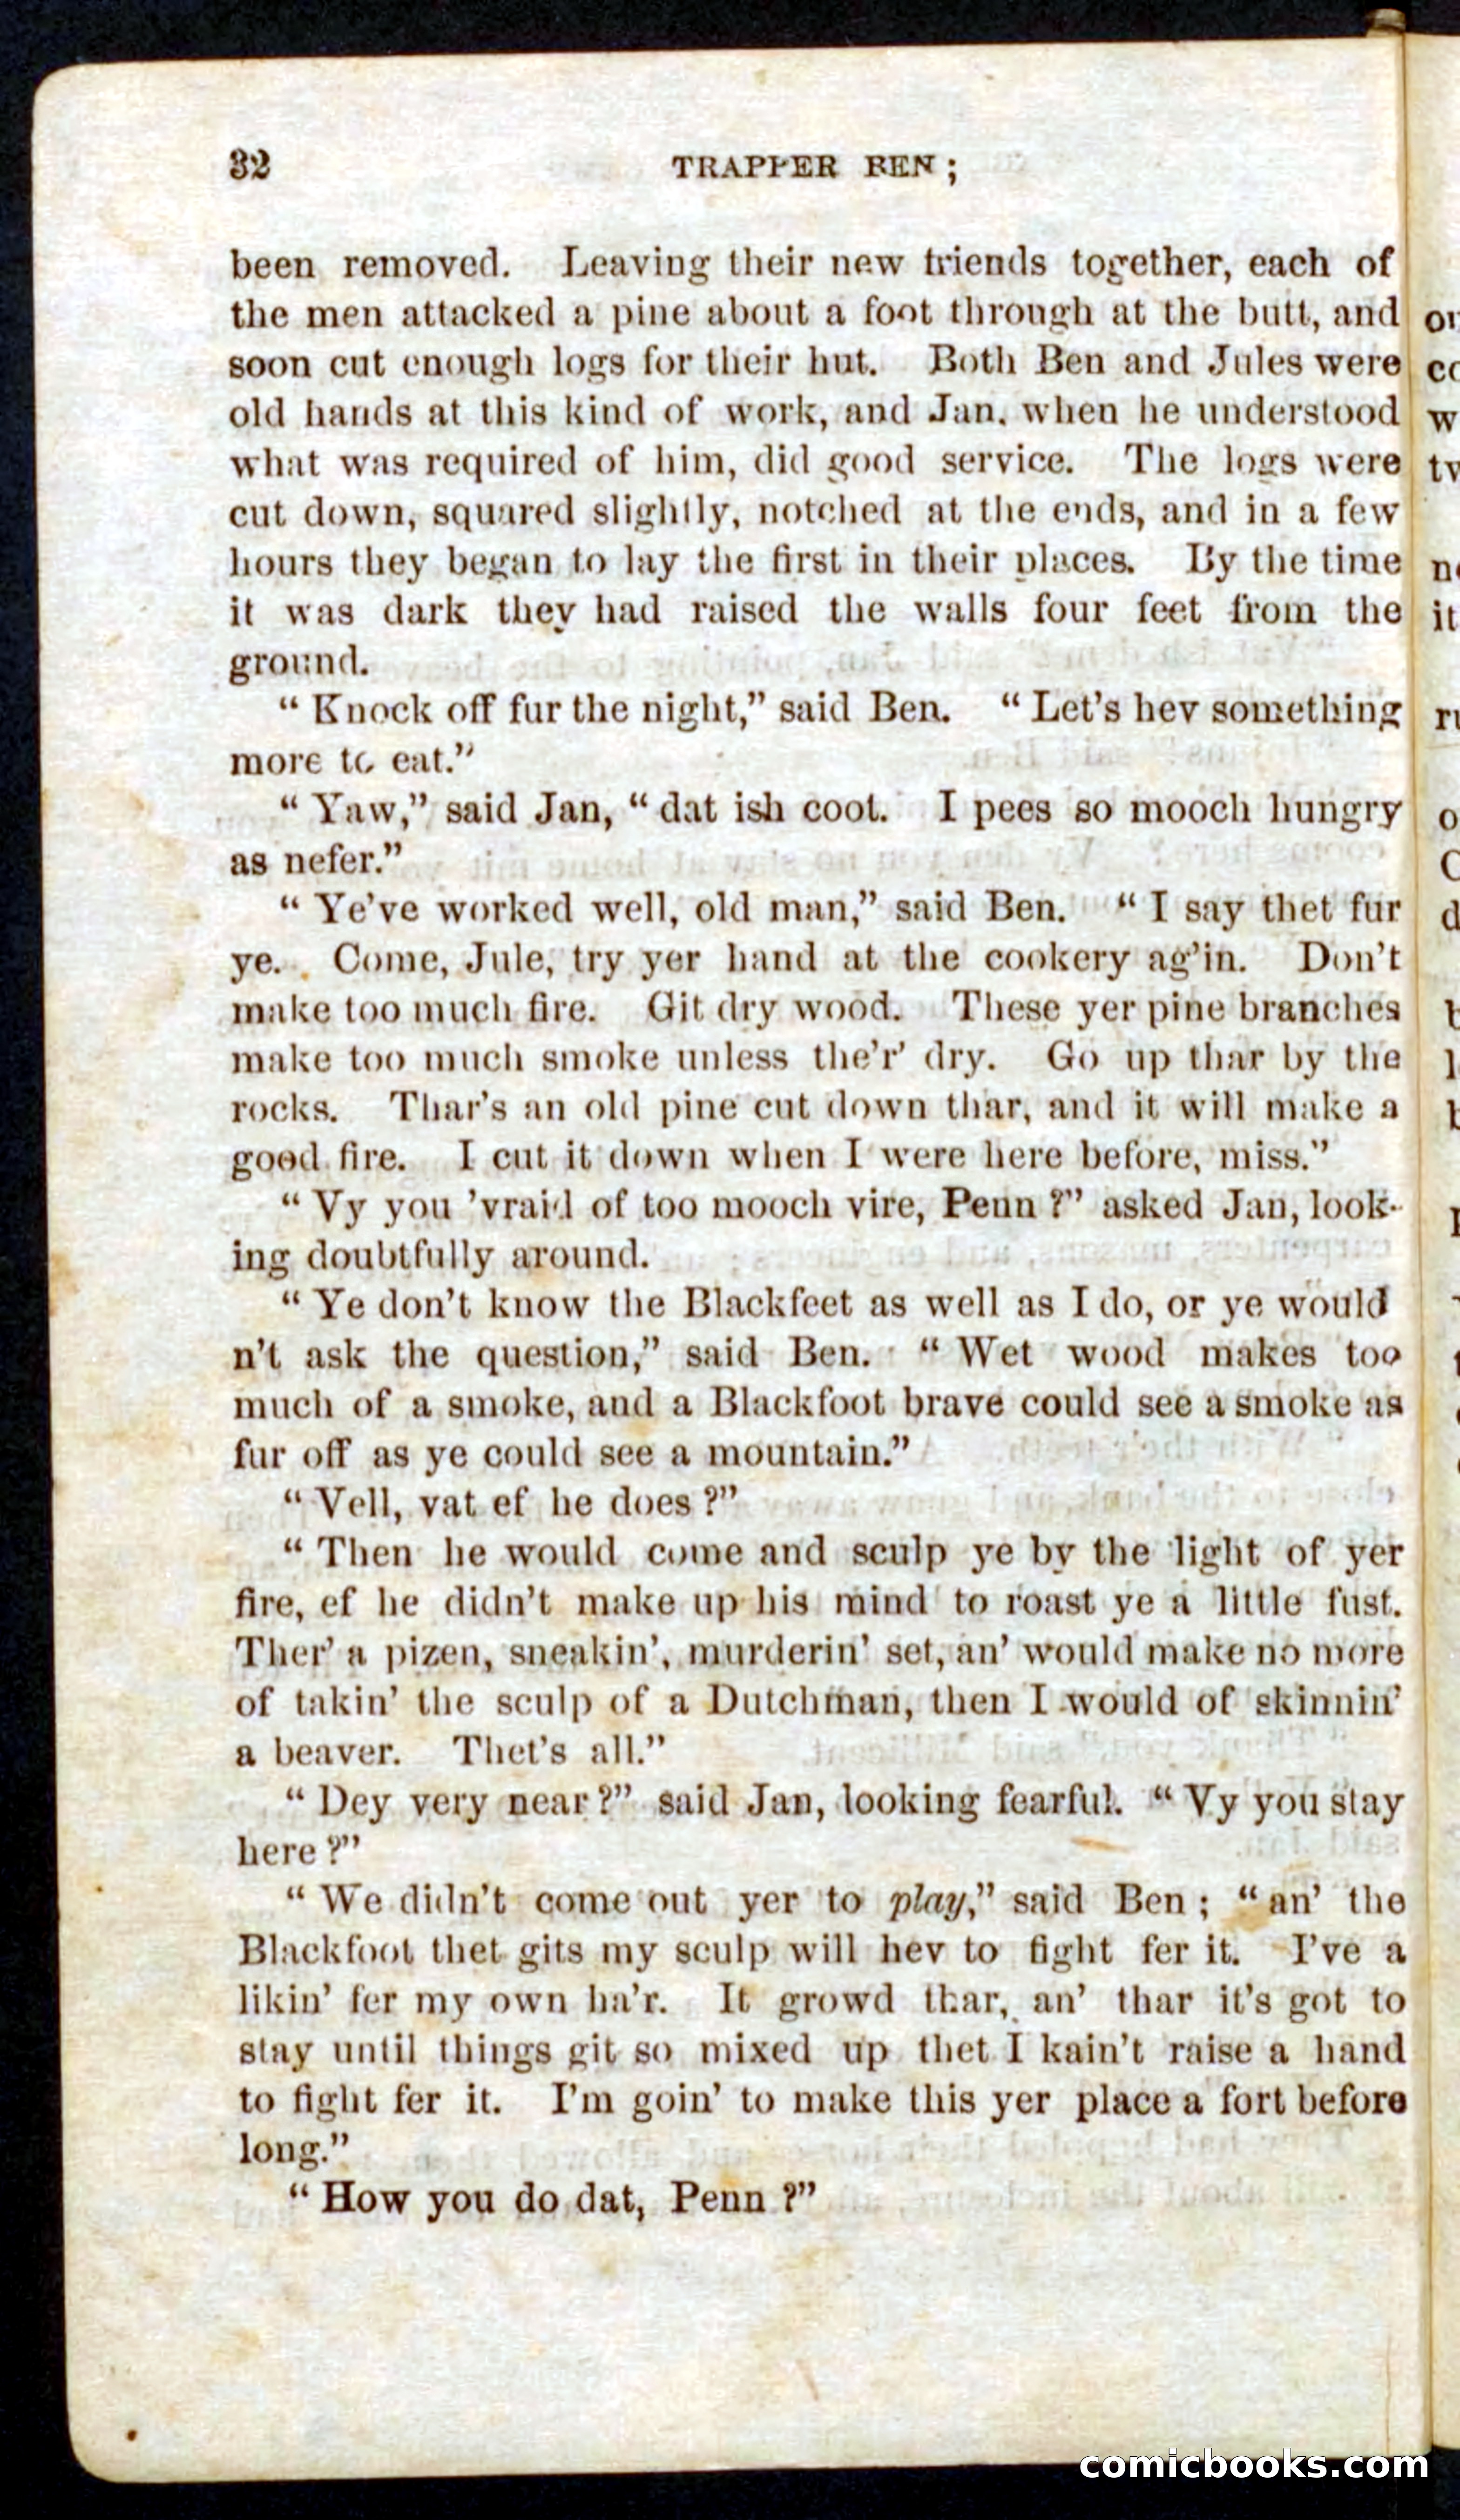 32 TRAPPER BEN;
been removed. Leaving their new friends together, each of
the men attacked a pine about a foot through at the butt, and
soon cut enough logs for their hut. Both Ben and Jules were
old hands at this kind of work, and Jan, when he understood
what was required of him, did good service. The logs were
cut down, squared slightly, notched at the ends, and in a few
hours they began to lay the first in their places. By the time
it was dark they had raised the walls four feet from the
ground.
“ Knock off fur the night,” said Ben. “ Let’s hev something
more to eat.”
“ Yaw,” said Jan, “ dat ish coot. I pees so mooch hungry
as nefer.”
“ Ye’ve worked well, old man,” said Ben. “ I say thet fur
ye. Come, Jule, try yer hand at the cookery ag’in. Don’t
make too much fire. Git dry wood. These yer pine branches
make too much smoke unless the’r’ dry. Go up thar by the
rocks. Thar’s an old pine cut down thar, and it will make a
good fire. I cut it down when I were here before, miss.”
“ Vy you ’vraid of too mooch vire, Penn ?” asked Jan, look-
ing doubtfully around.
“ Ye don’t know the Blackfeet as well as I do, or ye would
n’t ask the question,” said Ben. “ Wet wood makes too
much of a smoke, and a Blackfoot brave could see a smoke as
fur off as ye could see a mountain.”
“ Vell, vat ef he does ?”
“ Then he would come and sculp ye by the light of yer
fire, ef he didn’t make up his mind to roast ye a little fust.
Ther’ a pizen, sneakin’, murderin’ set, an’ would make no more
of takin’ the sculp of a Dutchman, then I would of skinnin’
a beaver. Thet’s all.”
“ Dey very near ?” said Jan, looking fearful. “ Vy you stay
here ?”
“ We didn’t come out yer to play,” said Ben ; “ an’ the
Blackfoot thet gits my sculp will hev to fight fer it. I’ve a
likin’ fer my own ha’r. It growd thar, an’ thar it’s got to
stay until things git so mixed up thet I kain’t raise a hand
to fight fer it. I’m goin’ to make this yer place a fort before
long.”
“ How you do dat, Penn ?”
comicbooks.com